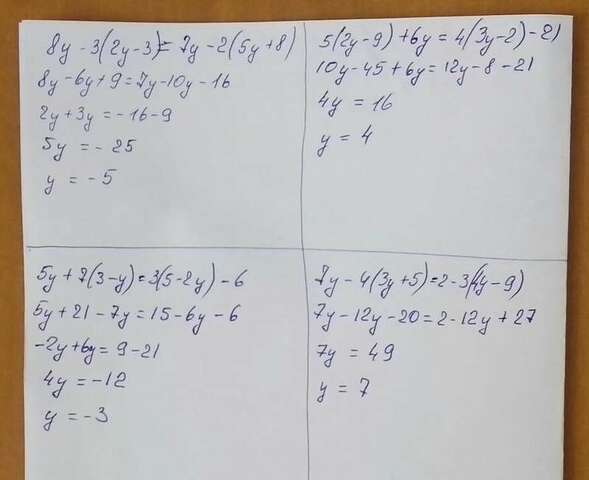 8y - 3(2y-3) = 7y - 2(5y+8)
8y - 6y + 9 = 7y - 10y - 16
2y + 3y = -16 - 9
5y = - 25
y = - 5
5(2y-9) + 6y = 4(3y-2) - 21
10y - 45 + 6y = 12y - 8 - 21
4y = 16
y = 4
5y + 7(3-y) = 3(5-2y) - 6
5y + 21 - 7y = 15 - 6y - 6
-2y + 6y = 9 - 21
4y = -12
y = -3
7y - 4(3y+5) = 2 - 3(4y-9)
7y - 12y - 20 = 2 - 12y + 27
7y = 49
y = 7